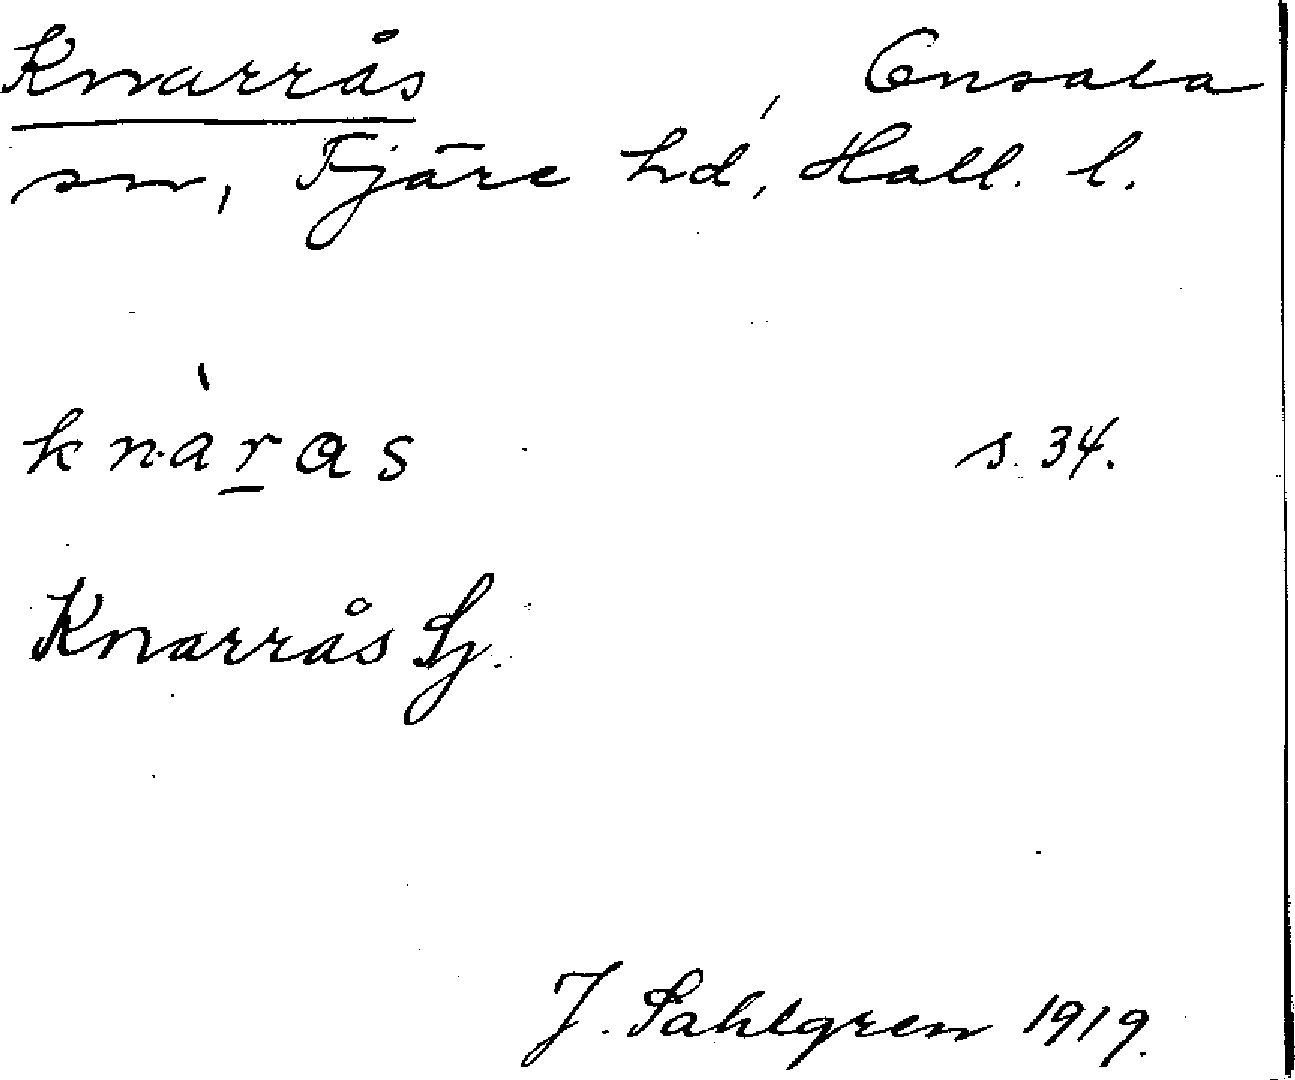 Knarrås , Onsala
sn, Fjäre hd, Hall. l.
knàras s. 34.
Knarrås Sj.
J. Sahlgren 1919.